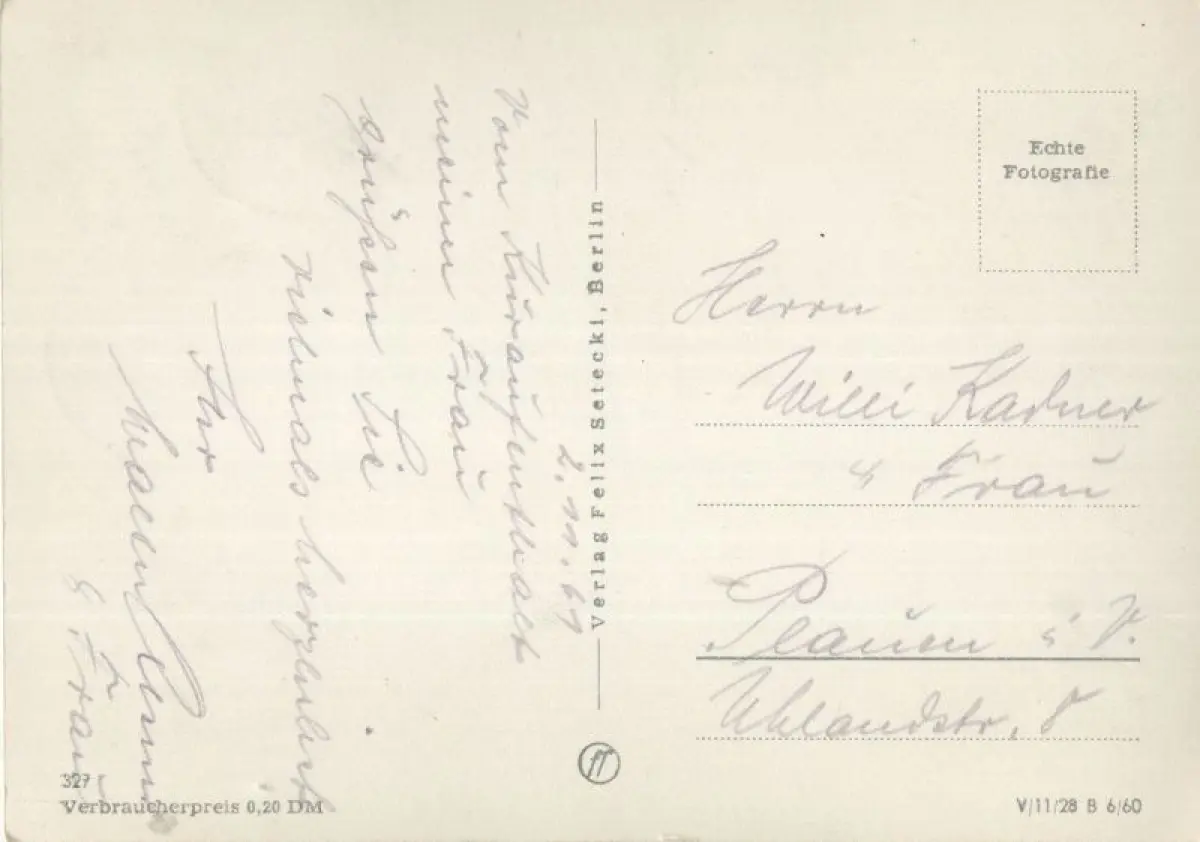 2.11.61
Vom Kuraufenthalt
meiner Frau
grüßen Sie
vielmals herzlichst
Ihr
& Frau
Verlag Felix Setecki, Berlin
Echte
Fotografie
Herrn
Willi Kadner
& Frau
Plauen i. V.
Uhlandstr. 8
327
Verbraucherpreis 0,20 DM
V/11/28 B 6/60